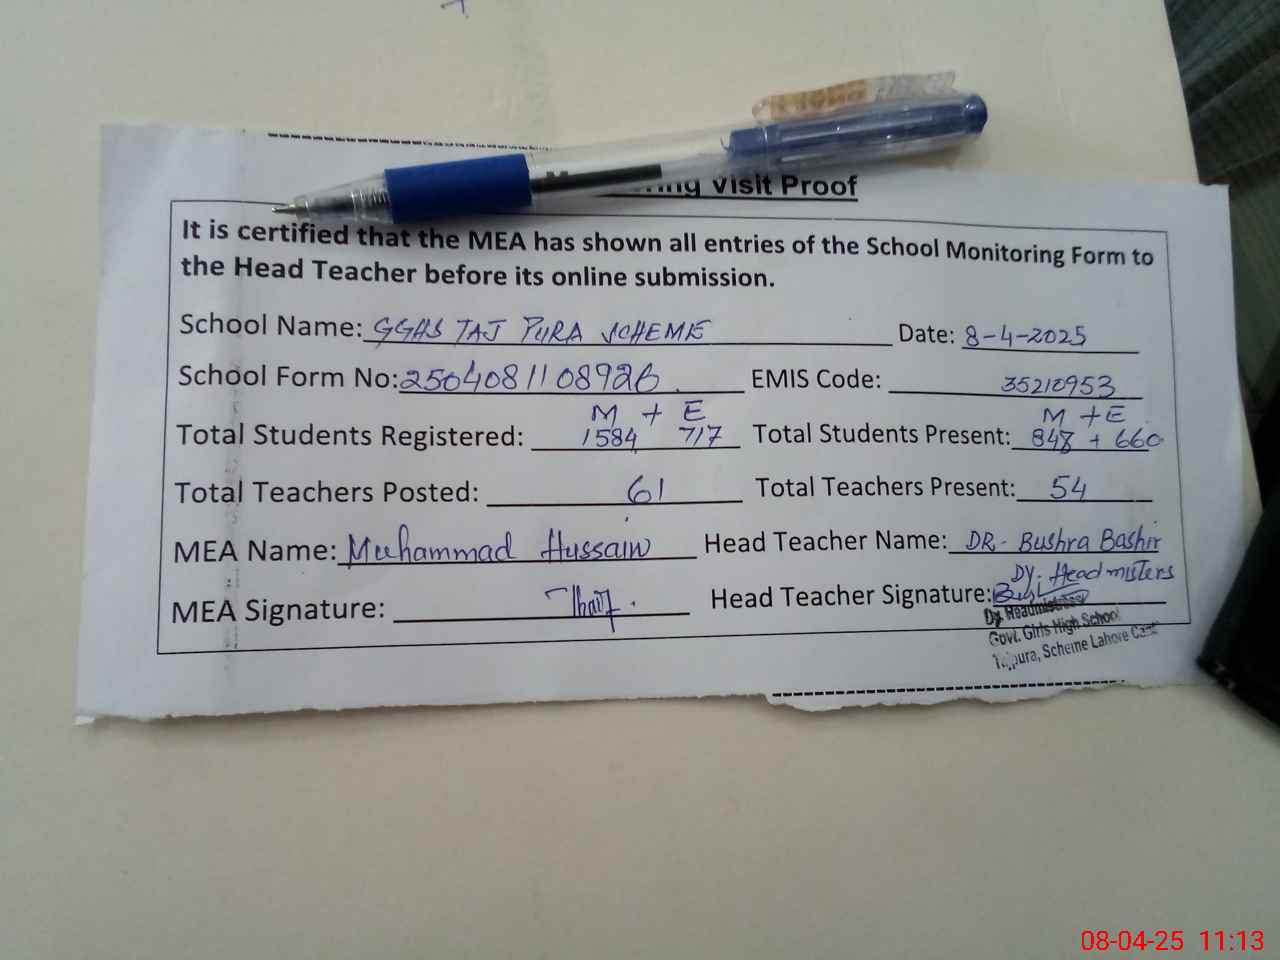 Visit Proof
It is certified that the MEA has shown all entries of the School Monitoring Form to
the Head Teacher before its online submission.
School Name: GGHS TAJ PURA SCHEME Date: 8-4-2025
School Form No: 2504081108926 EMIS Code: 35210953
M + E M + E
Total Students Registered: 1584 717 Total Students Present: 848 + 660
Total Teachers Posted: 61 Total Teachers Present: 54
MEA Name: Muhammad Hussain Head Teacher Name: DR. Bushra Bashir
Dy. Headmisters
MEA Signature: Head Teacher Signature:
Dy Headmistress
Govt. Girls High School
Tajpura, Scheme Lahore Cantt
08-04-25 11:13